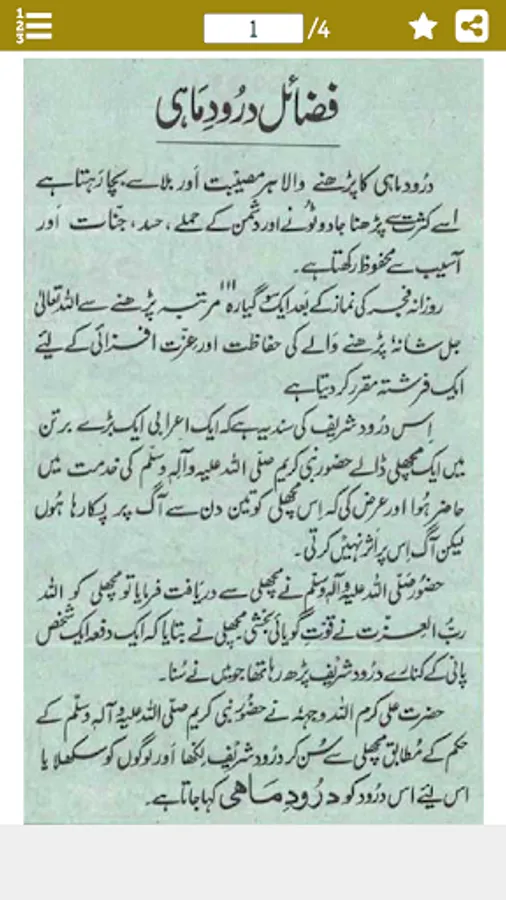 1 /4
فضائل درودِ ماہی
درود ماہی کا پڑھنے والا ہر مصیبت اور بلا سے بچا رہتا ہے
اسے کثرت سے پڑھنا جادو ٹونے اور دشمن کے حملے، حسد، جنّات اور
آسیب سے محفوظ رکھتا ہے۔
روزانہ فجر کی نماز کے بعد ایک سو گیارہ ۱۱۱ مرتبہ پڑھنے سے اللہ تعالیٰ
جل شانہٗ پڑھنے والے کی حفاظت اور عزت افزائی کے لیئے
ایک فرشتہ مقرر کر دیتا ہے
اِس درود شریف کی سند یہ ہے کہ ایک اعرابی ایک بڑے برتن
میں ایک مچھلی ڈالے حضور نبی کریم صلّی اللہ علیہ وآلہٖ وسلّم کی خدمت میں
حاضر ہُوا اور عرض کی کہ اِس مچھلی کو تین دن سے آگ پر پکا رہا ہُوں
لیکن آگ اِس پر اَثر نہیں کرتی۔
حضُور صلّی اللہ علیہ وآلہٖ وسلم نے مچھلی سے دریافت فرمایا تو مچھلی کو اللہ
ربُّ العزّت نے قوّتِ گویائی بخشی مچھلی نے بتایا کہ ایک دفعہ ایک شخص
پانی کے کنارے درود شریف پڑھ رہا تھا جو میں نے سُنا۔
حضرت علی کرم اللہ وجہہٗ نے حضُور نبی کریم صلّی اللہ علیہ وآلہٖ وسلّم کے
حکم کے مُطابق مچھلی سے سُن کر درود شریف لِکھا اور لوگوں کو سکھلایا
اس لیئے اس درود کو درودِ ماہی کہا جاتا ہے۔